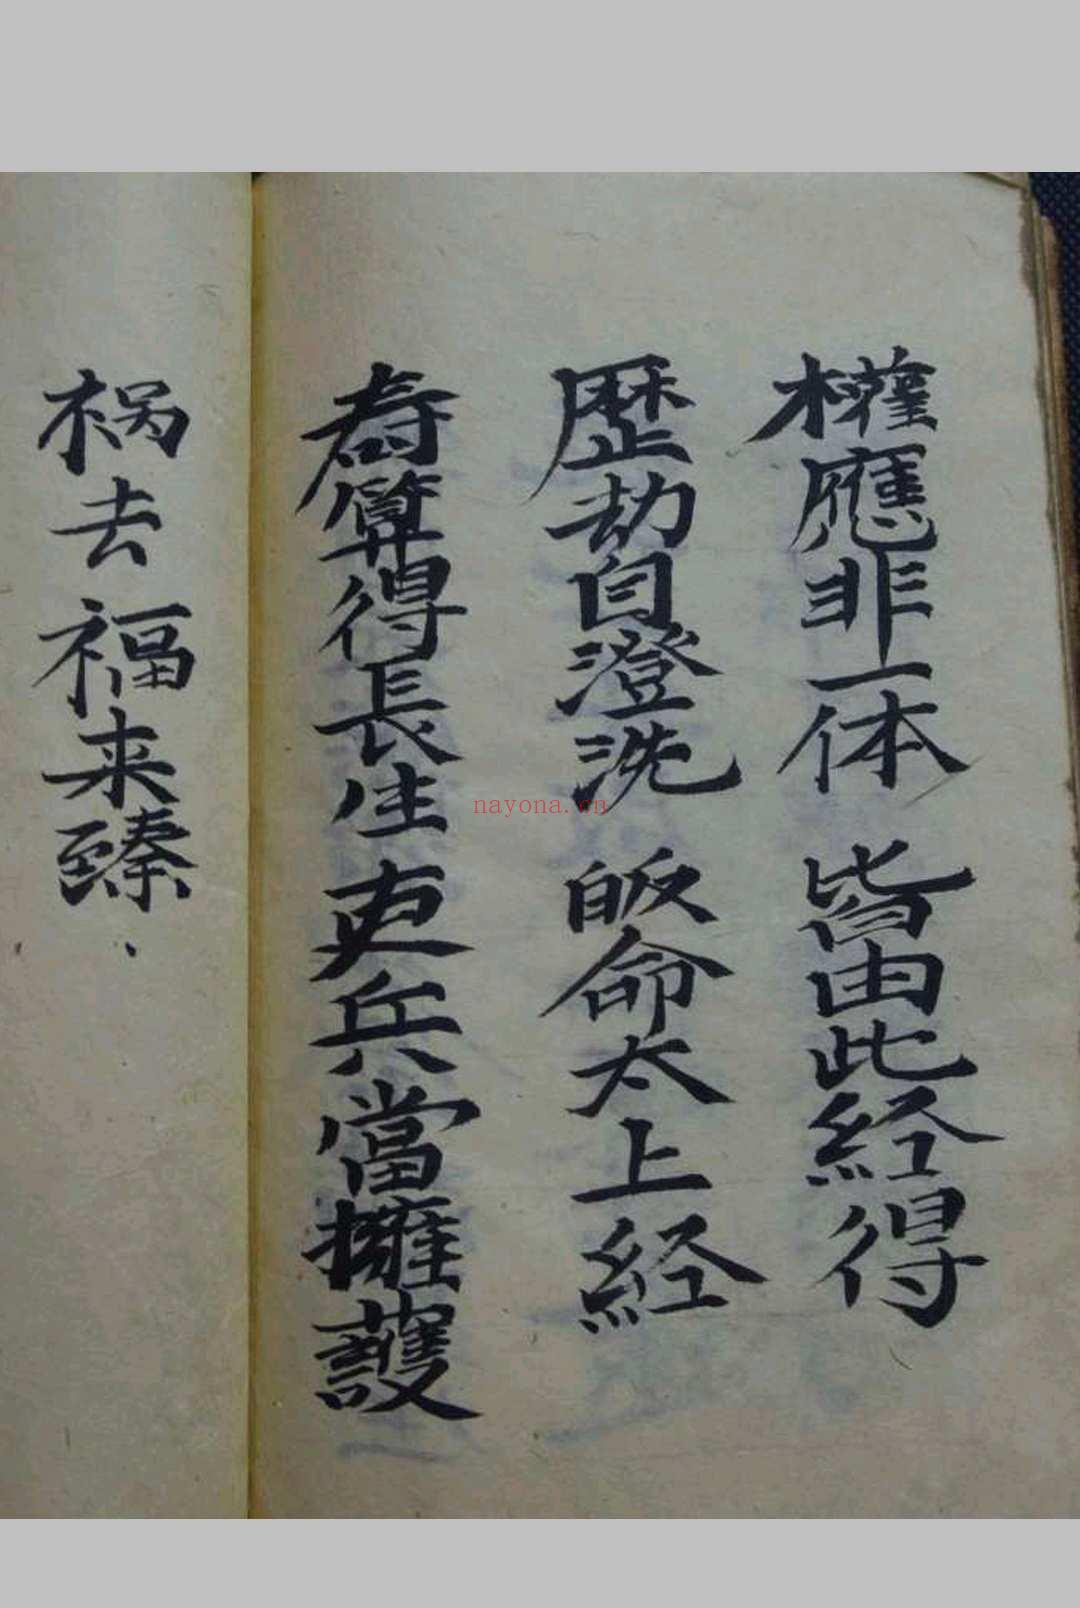 權應非一体 皆由此経得
歴劫自澄洗 皈命太上経
寿算得長生 吏兵當擁護
祸去福来臻、
nayona.cn